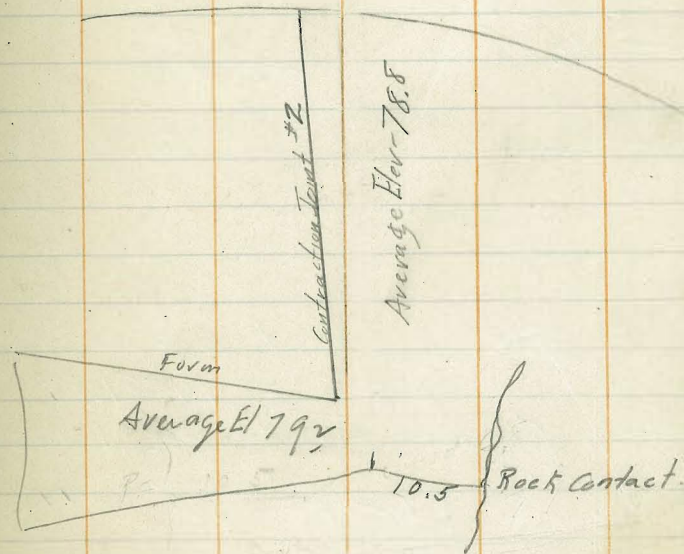 Contraction Joint #2
Average Elev- 78.8
Form
Average El 79
10.5
Rock Contact.